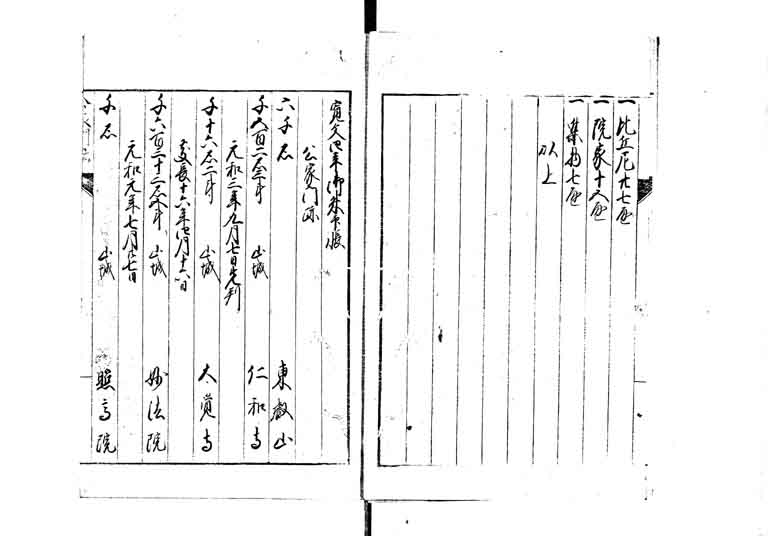 一比丘尼廿七通
一院家十五通
一集物七通
以上
寛文四年御朱印帳
公家門跡
六千石 東叡山
千五百二石三斗 山城 仁和寺
元和三年九月七日先判
千十六石二斗 山城 大覚寺
慶長十六年四月十六日
千六百三十二石 山城 妙法院
元和元年七月廿七日
千石 山城 照高院